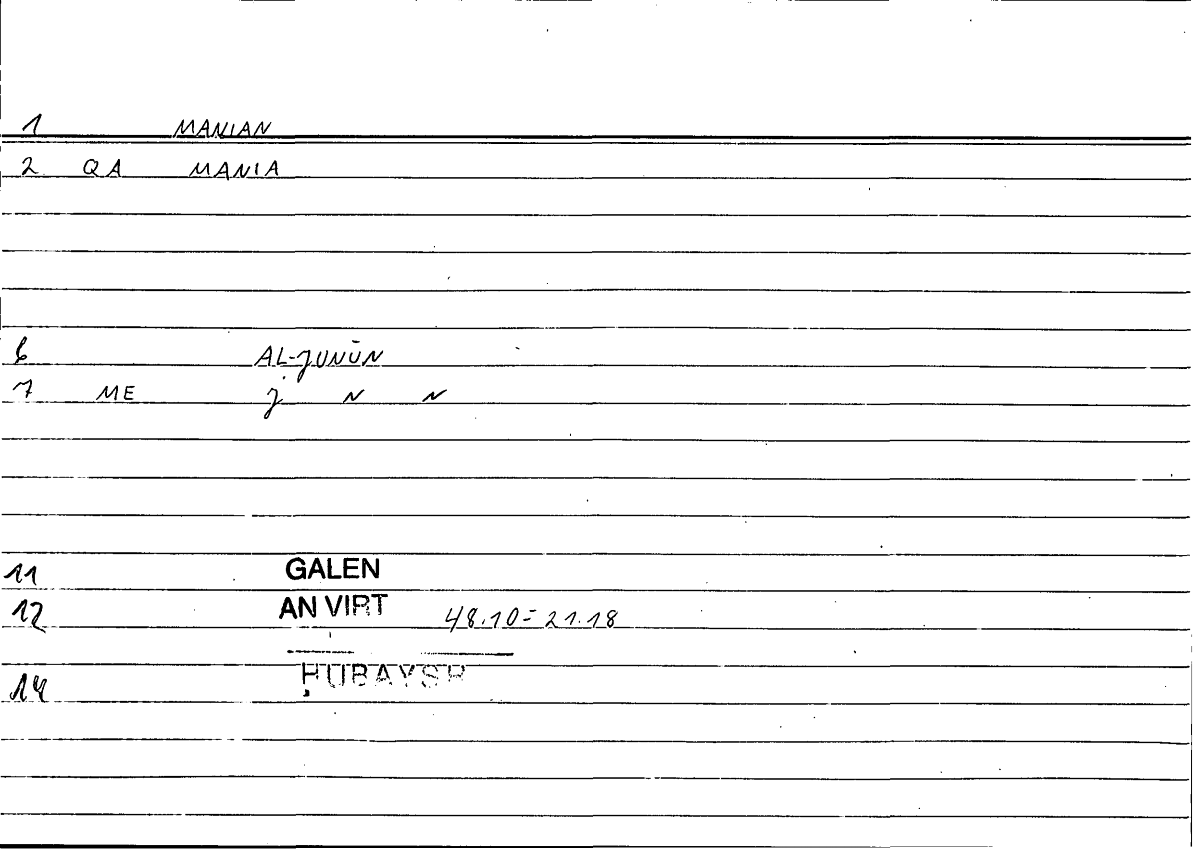 1 MANIAN
2 QA MANIA
6 AL-JUNŪN
7 ME J N N
11 GALEN
12 AN VIRT 48.10=21.18
14 ḤUBAYSH